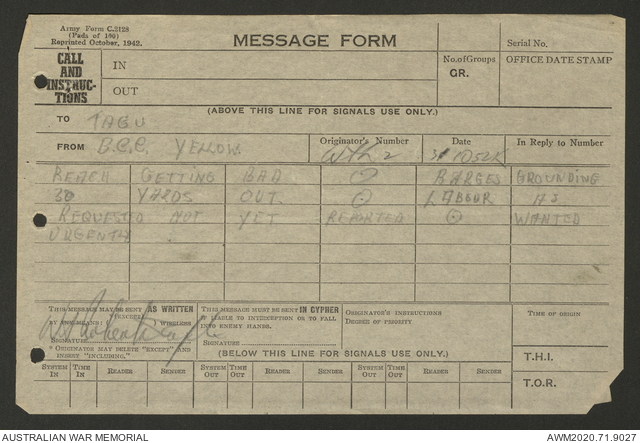 Army Form C.2128
(Pads of 100)
Reprinted October, 1942.
MESSAGE FORM
Serial No.
CALL AND INSTRUCTIONS
IN
OUT
No. of Groups
GR.
OFFICE DATE STAMP
(ABOVE THIS LINE FOR SIGNALS USE ONLY.)
TO TABU
FROM B.C.C. YELLOW
Originator's Number
Date
In Reply to Number
BEACH GETTING BAD BARGES GROUNDING
30 YARDS OUT. LABOUR AS
REQUESTED NOT YET REPORTED WANTED
URGENTLY .
THIS MESSAGE MAY BE SENT AS WRITTEN
(EXCEPT)
WIRELESS
SIGNATURE
* ORIGINATOR MAY DELETE "EXCEPT" AND
INSERT "INCLUDING."
THIS MESSAGE MUST BE SENT IN CYPHER
IF LIABLE TO INTERCEPTION OR TO FALL
INTO ENEMY HANDS.
SIGNATURE
ORIGINATOR'S INSTRUCTIONS
DEGREE OF PRIORITY
TIME OF ORIGIN
(BELOW THIS LINE FOR SIGNALS USE ONLY.)
T.H.I.
SYSTEM IN TIME IN READER SENDER SYSTEM OUT TIME OUT READER SENDER SYSTEM OUT TIME OUT READER SENDER
T.O.R.
AUSTRALIAN WAR MEMORIAL
AWM2020.71.9027